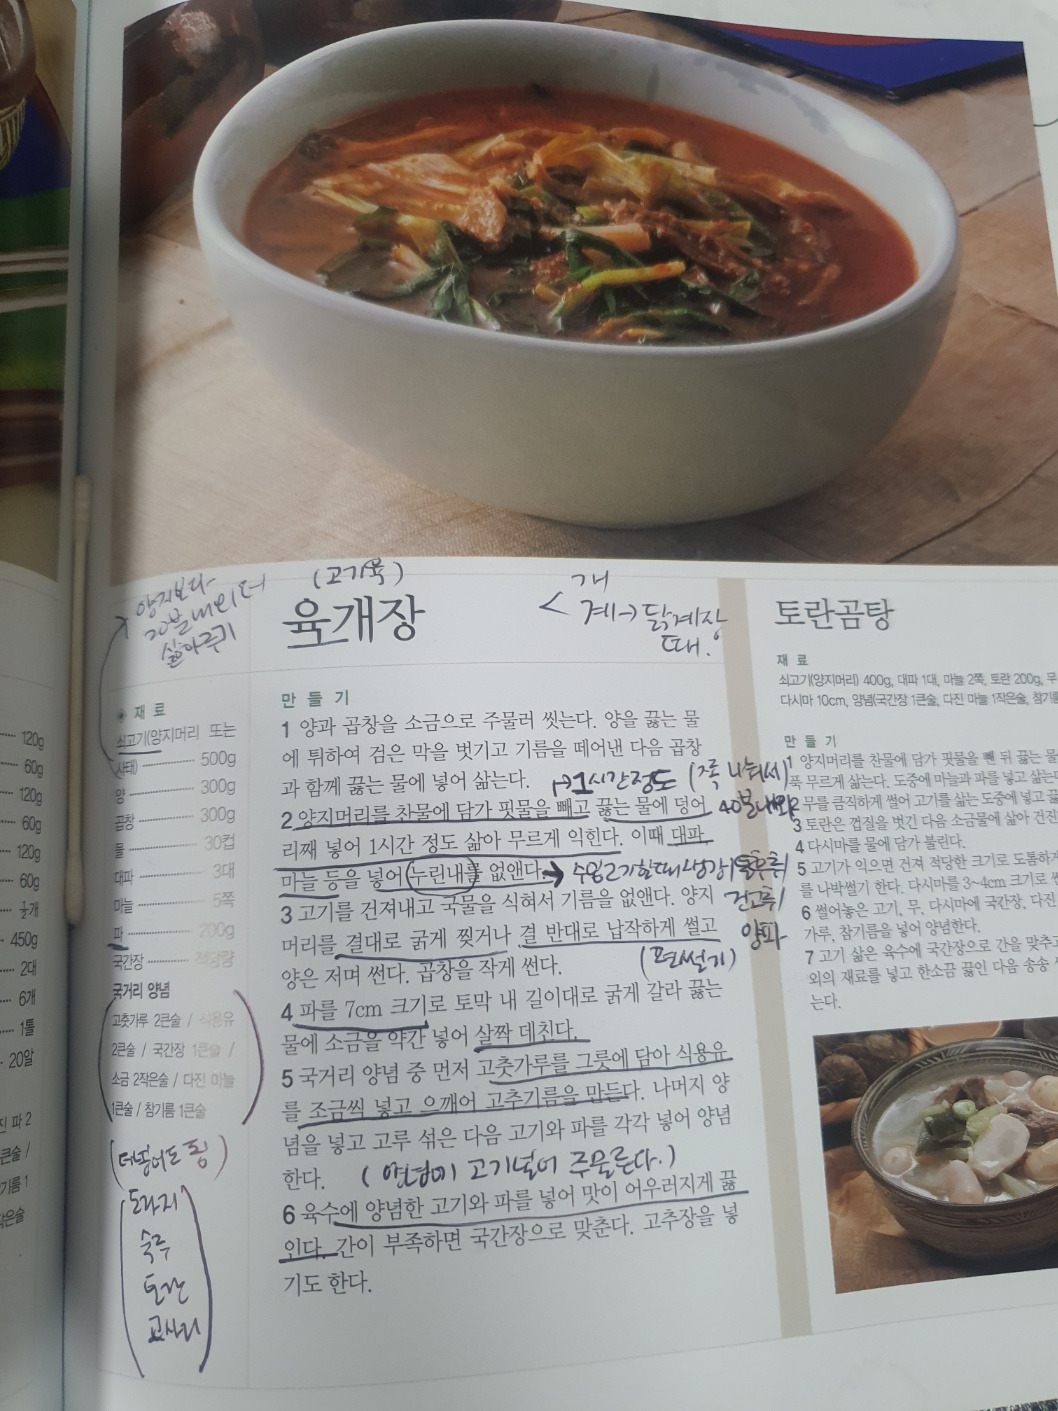 양지보다
20분 내외 더
삶아주기
(고기육)
육개장
< 개
계→닭계장
때.
재 료
쇠고기(양지머리 또는
사태) 500g
양 300g
곱창 300g
물 30컵
대파 3대
마늘 5쪽
파 200g
국간장 적당량
국거리 양념
고춧가루 2큰술 / 식용유
2큰술 / 국간장 1큰술 /
소금 2작은술 / 다진 마늘
1큰술 / 참기름 1큰술
(더넣어도 됨)
도라지
숙주
토란
고사리
만 들 기
1 양과 곱창을 소금으로 주물러 씻는다. 양을 끓는 물
에 튀하여 검은 막을 벗기고 기름을 떼어낸 다음 곱창
과 함께 끓는 물에 넣어 삶는다.
→1시간정도
40분내외
2 양지머리를 찬물에 담가 핏물을 빼고 끓는 물에 덩어
리째 넣어 1시간 정도 삶아 무르게 익힌다. 이때 대파,
마늘 등을 넣어 누린내를 없앤다.
→ 수입고기할때 생강
양파
3 고기를 건져내고 국물을 식혀서 기름을 없앤다. 양지
머리를 결대로 굵게 찢거나 결 반대로 납작하게 썰고
양은 저며 썬다. 곱창을 작게 썬다.
(편썰기)
4 파를 7cm 크기로 토막 내 길이대로 굵게 갈라 끓는
물에 소금을 약간 넣어 살짝 데친다.
5 국거리 양념 중 먼저 고춧가루를 그릇에 담아 식용유
를 조금씩 넣고 으깨어 고추기름을 만든다. 나머지 양
념을 넣고 고루 섞은 다음 고기와 파를 각각 넣어 양념
한다.
(양념에 고기넣어 주물른다.)
6 육수에 양념한 고기와 파를 넣어 맛이 어우러지게 끓
인다. 간이 부족하면 국간장으로 맞춘다. 고추장을 넣
기도 한다.
토란곰탕
재 료
쇠고기(양지머리) 400g, 대파 1대, 마늘 2쪽, 토란 200g, 무
다시마 10cm, 양념(국간장 1큰술, 다진 마늘 1작은술, 참기름
만 들 기
1 양지머리를 찬물에 담가 핏물을 뺀 뒤 끓는 물
푹 무르게 삶는다. 도중에 마늘과 파를 넣고 삶는
2 무를 큼직하게 썰어 고기를 삶는 도중에 넣고
3 토란은 껍질을 벗긴 다음 소금물에 삶아 건진
4 다시마를 물에 담가 불린다.
5 고기가 익으면 건져 적당한 크기로 도톰하게
를 나박썰기 한다. 다시마를 3~4cm 크기로
6 썰어놓은 고기, 무, 다시마에 국간장, 다진
가루, 참기름을 넣어 양념한다.
7 고기 삶은 육수에 국간장으로 간을 맞추고
외의 재료를 넣고 한소끔 끓인 다음 송송
는다.
120g
60g
120g
60g
120g
60g
½개
450g
2대
6개
1톨
20알
진 파 2
큰술 /
기름 1
작은술